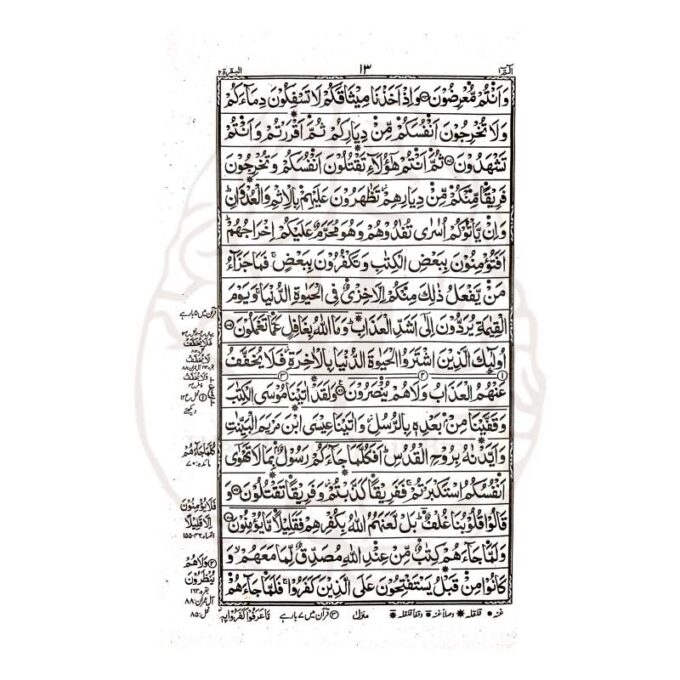 الٓمٓ ١
١٣
البقرة ٢
وَاَنْتُمْ مُّعْرِضُوْنَ ۝ وَاِذْ اَخَذْنَا مِيْثَاقَكُمْ لَا تَسْفِكُوْنَ دِمَآءَكُمْ
وَلَا تُخْرِجُوْنَ اَنْفُسَكُمْ مِّنْ دِيَارِكُمْ ثُمَّ اَقْرَرْتُمْ وَاَنْتُمْ
تَشْهَدُوْنَ ۝ ثُمَّ اَنْتُمْ هٰٓؤُلَآءِ تَقْتُلُوْنَ اَنْفُسَكُمْ وَتُخْرِجُوْنَ
فَرِيْقًا مِّنْكُمْ مِّنْ دِيَارِهِمْ تَظٰهَرُوْنَ عَلَيْهِمْ بِالْاِثْمِ وَالْعُدْوَانِ ؕ
وَاِنْ يَّاْتُوْكُمْ اُسٰرٰى تُفٰدُوْهُمْ وَهُوَ مُحَرَّمٌ عَلَيْكُمْ اِخْرَاجُهُمْ ؕ
اَفَتُؤْمِنُوْنَ بِبَعْضِ الْكِتٰبِ وَتَكْفُرُوْنَ بِبَعْضٍ ۚ فَمَا جَزَآءُ
مَنْ يَّفْعَلُ ذٰلِكَ مِنْكُمْ اِلَّا خِزْىٌ فِى الْحَيٰوةِ الدُّنْيَا ۚ وَيَوْمَ
الْقِيٰمَةِ يُرَدُّوْنَ اِلٰٓى اَشَدِّ الْعَذَابِ ؕ وَمَا اللّٰهُ بِغَافِلٍ عَمَّا تَعْمَلُوْنَ ۝
اُولٰٓئِكَ الَّذِيْنَ اشْتَرَوُا الْحَيٰوةَ الدُّنْيَا بِالْاٰخِرَةِ ؗ فَلَا يُخَفَّفُ
عَنْهُمُ الْعَذَابُ وَلَا هُمْ يُنْصَرُوْنَ ۝ وَلَقَدْ اٰتَيْنَا مُوْسَى الْكِتٰبَ
وَقَفَّيْنَا مِنْۢ بَعْدِهٖ بِالرُّسُلِ ؗ وَاٰتَيْنَا عِيْسَى ابْنَ مَرْيَمَ الْبَيِّنٰتِ
وَاَيَّدْنٰهُ بِرُوْحِ الْقُدُسِ ؕ اَفَكُلَّمَا جَآءَكُمْ رَسُوْلٌۢ بِمَا لَا تَهْوٰٓى
اَنْفُسُكُمُ اسْتَكْبَرْتُمْ ۚ فَفَرِيْقًا كَذَّبْتُمْ ؗ وَفَرِيْقًا تَقْتُلُوْنَ ۝ وَ
قَالُوْا قُلُوْبُنَا غُلْفٌ ؕ بَلْ لَّعَنَهُمُ اللّٰهُ بِكُفْرِهِمْ فَقَلِيْلًا مَّا يُؤْمِنُوْنَ ۝
وَلَمَّا جَآءَهُمْ كِتٰبٌ مِّنْ عِنْدِ اللّٰهِ مُصَدِّقٌ لِّمَا مَعَهُمْ ۙ وَ
كَانُوْا مِنْ قَبْلُ يَسْتَفْتِحُوْنَ عَلَى الَّذِيْنَ كَفَرُوْا ۚ فَلَمَّا جَآءَهُمْ
قرآن میں ۵ بار ہے
فَلَا يُخَفَّفُ
لَا يُخَفَّفُ
كُلَّمَا جَآءَهُمْ
مائدہ: ۷۰
فَلَا يُؤْمِنُوْنَ
اِلَّا قَلِيْلًا
نساء: ۴۶-۱۵۵
وَلَا هُمْ
يُنْظَرُوْنَ
بقرہ: ۱۶۲
آل عمران: ۸۸
نحل: ۸۵
غنہ ● قلقلہ ✱ وصلاً غنہ ◉ وقفاً قلقلہ ✱
منزل
قرآن میں ۷ بار ہے
مَا عَرَفُوْا كَفَرُوْا بِهٖ